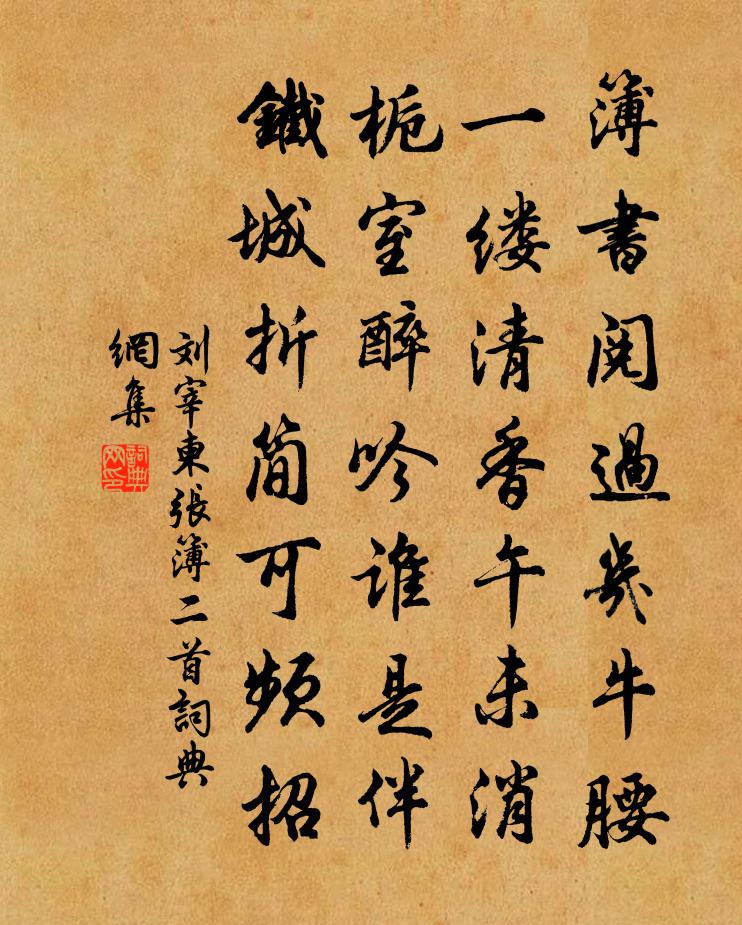 簿書閱過幾牛腰
一缕清香午未消
栀室醉吟谁是伴
鐵城折简可频招
刘宰東張簿二首詞典
網集
詞典
网印